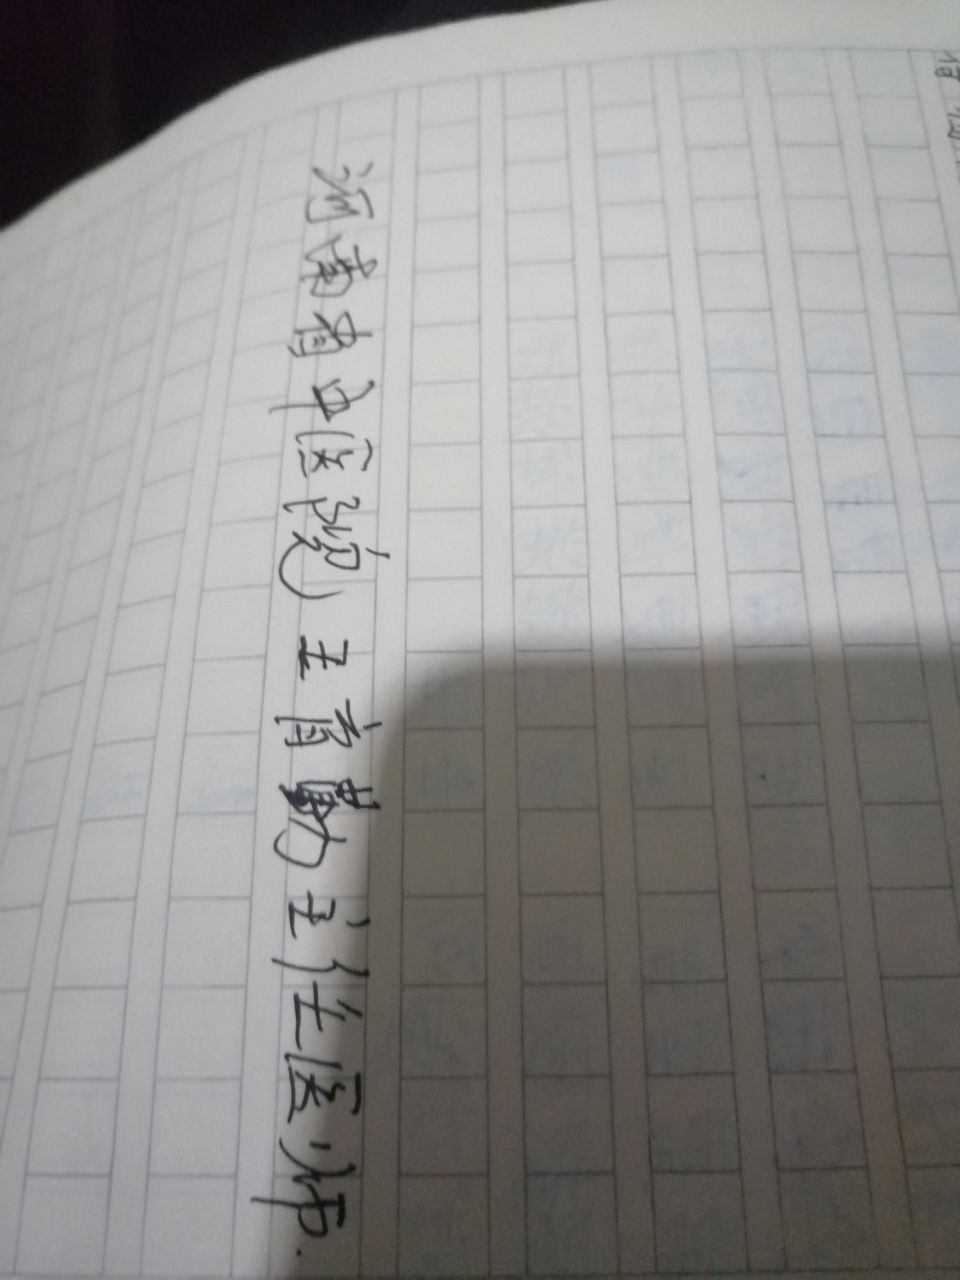 河南省中医院 王育勤主任医师.